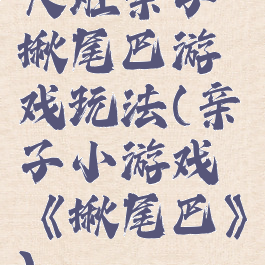 揪尾巴游
戏玩法(亲
子小游戏
《揪尾巴》
)